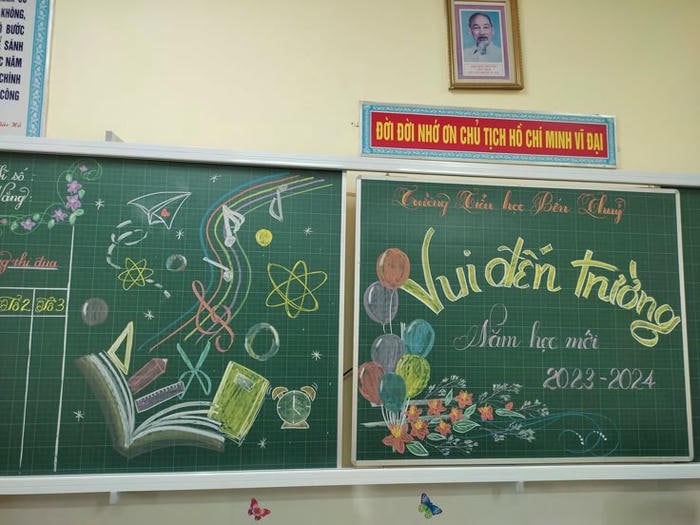 KHÔNG,
BƯỚC
SÁNH
NĂM
CHÍNH
CÔNG
ĐỜI ĐỜI NHỚ ƠN CHỦ TỊCH HỒ CHÍ MINH VĨ ĐẠI
sĩ số:
Vắng:
thi đua
Tổ 2 Tổ 3
Trường Tiểu học Bến Thuỷ
Vui đến trường
Năm học mới
2023-2024